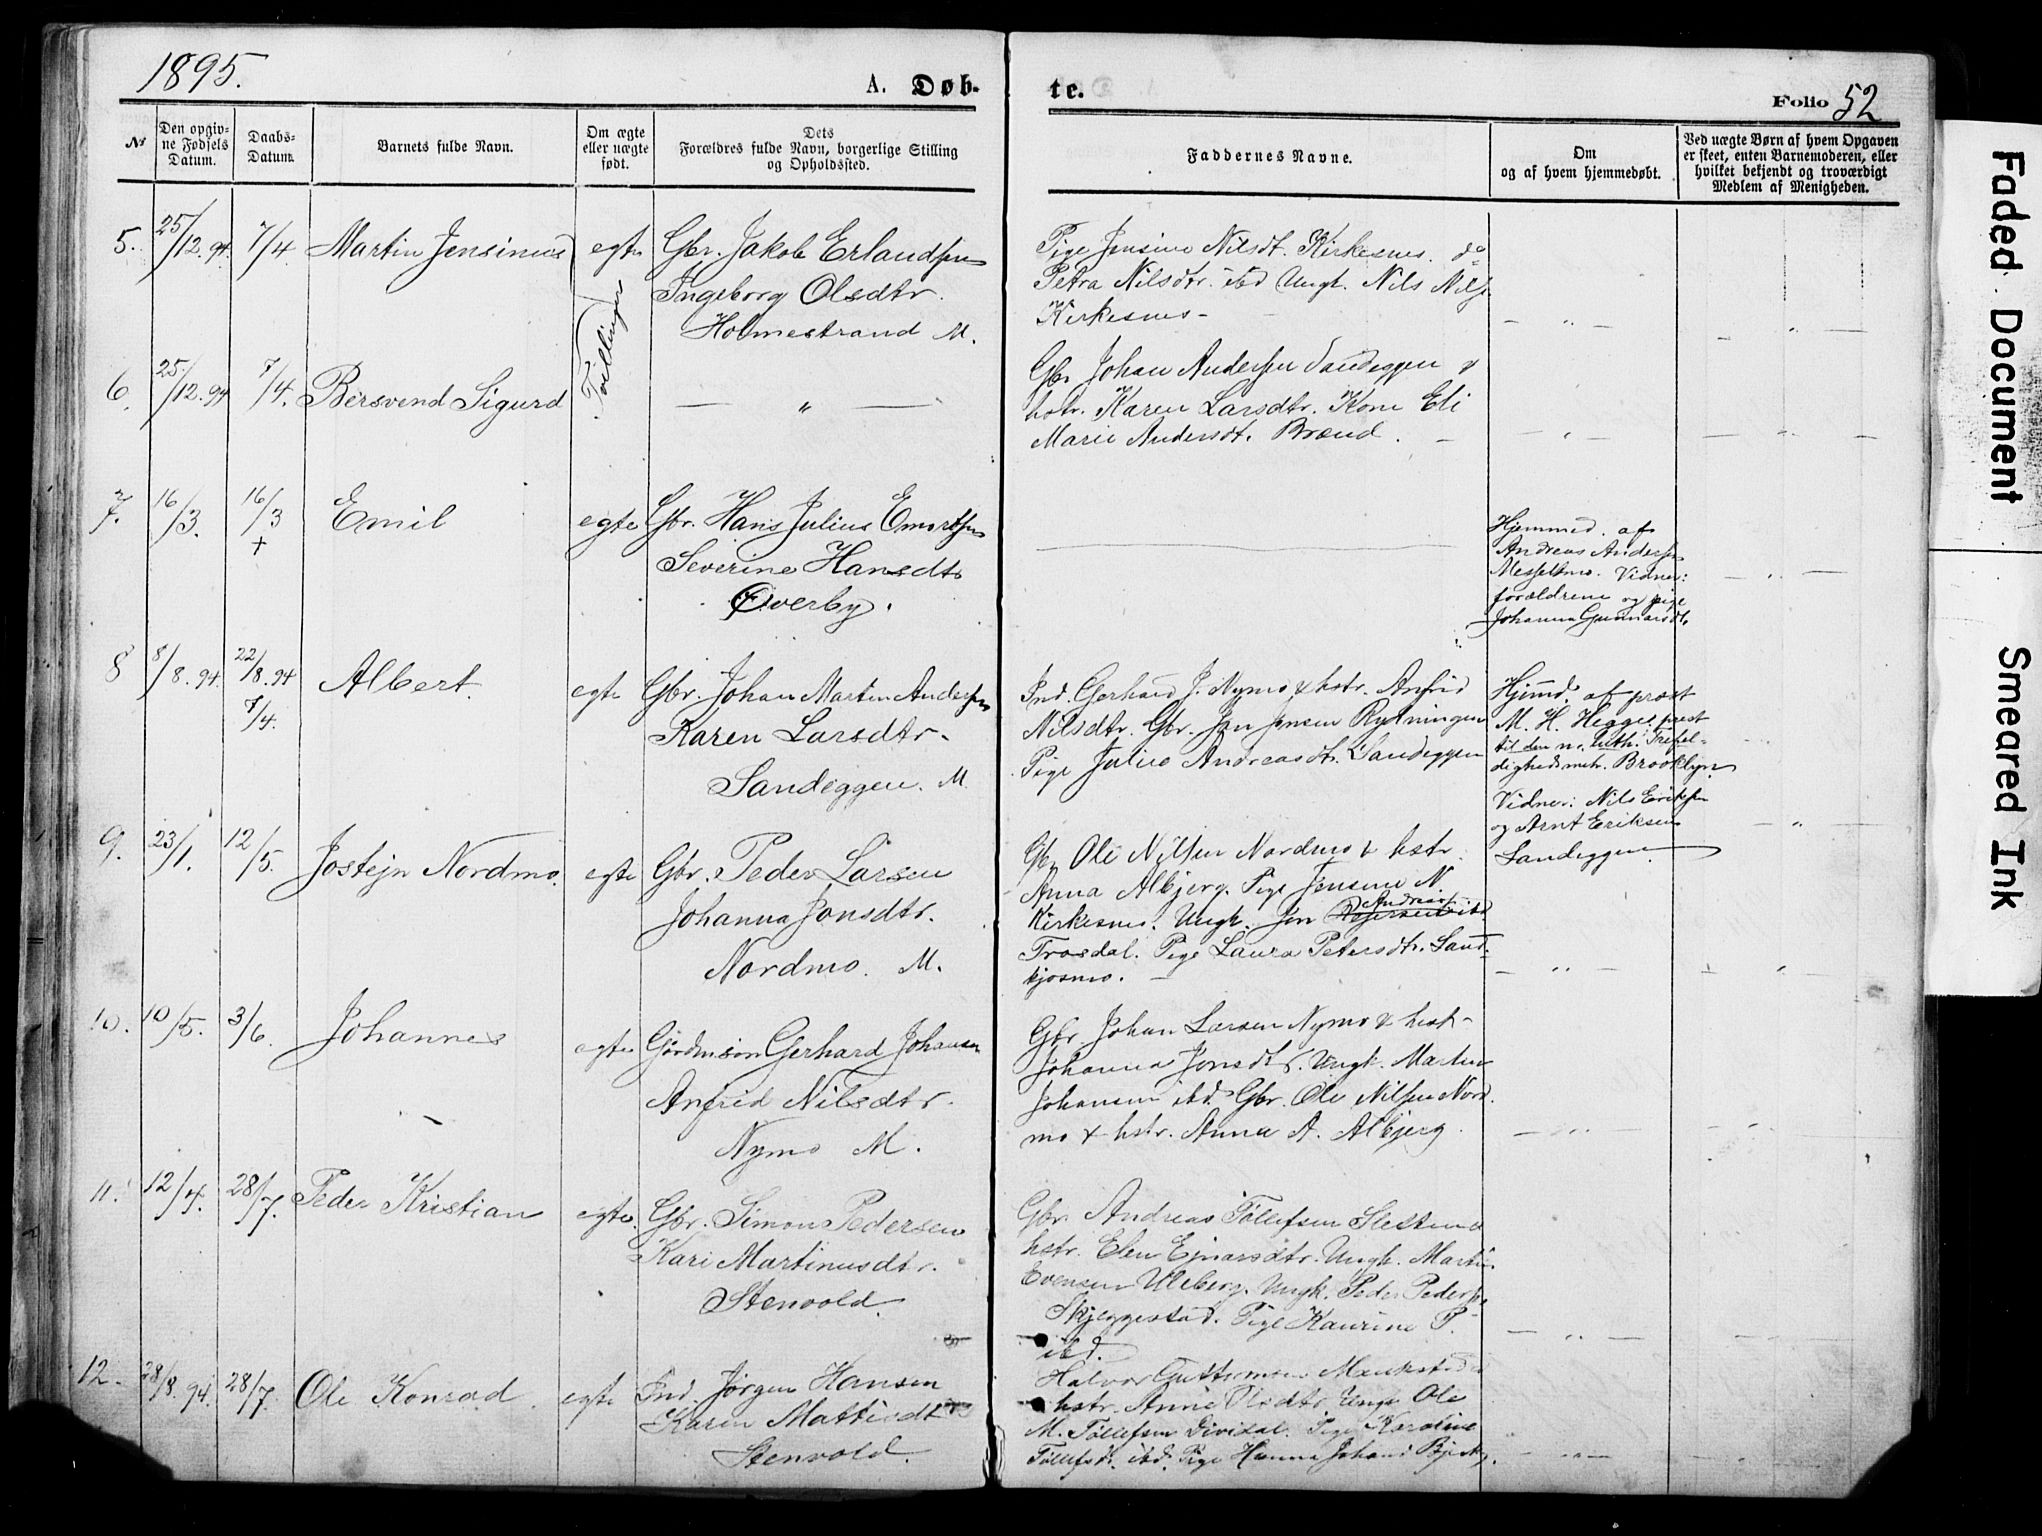 1895.
A. Døb-
te.
Folio 52
№
Den opgiv-
ne Fødsels
Datum.
Daabs-
Datum.
Barnets fulde Navn.
Om ægte
eller uægte
født.
Dets
Forældres fulde Navn, borgerlige Stilling
og Opholdssted.
Faddernes Navne.
Om
og af hvem hjemmedøbt.
Ved uægte Børn af hvem Opgaven
er skeet, enten Barnemoderen, eller
hvilket bekjendt og troværdigt
Medlem af Menigheden.
5. 25/12.94 7/4 Martin Jensinius egte Gbr. Jakob Erlandsen
Ingeborg Olsdtr.
Holmestrand M.
Pige Jensine Nilsdt. Kirkesnes. do
Petra Nilsdtr. ibd Ungk. Nils Nils.
Kirkesnes -
— „ —
Tvillinger
6. 25/12.94 7/4. Bersvend Sigurd
— „ —
Gbr Johan Andersen Sandeggen &
hstr. Karen Larsdtr. Kone Eli
Marie Andersdt. Brænd. —
7. 16/3. 16/3 + Emil egte Gbr. Hans Julius Emertsen
Severine Hansdtr
Øverby.
Hjemmed. af
Andreas Andersen
Messeltmo. Vidner:
forældrene og pige
Johanna Gunnarsdt.
8 8/8.94 22/8.94 7/4. Albert. egte Gbr. Johan Martin Andersen
Karen Larsdtr.
Sandeggen. M.
Ind. Gerhard J. Nymo & hstr. Anfrid
Nilsdtr. Gbr. Jon Jensen Rydningen
Pige Julie Andreasdt. Sandeggen
Hjmd. af prest
M. H. Hegge, prest
til den n. luth. Trefol-
dighedsmh. Brooklyn.
Vidner: Nils Eriksen
og Arnt Eriksen
Sandeggen.
9. 23/1. 12/5. Jostejn Nordmo. egte Gbr. Peder Larsen
Johanna Jonsdtr.
Nordmo. M.
Gbr Ole Nilsen Nordmo & hstr.
Anna Albjerg. Pige Jensine N.
Kirkesnes. Ungk. Jon Andreas
Trosdal. Pige Laura Petersdtr. Sand-
kjosmo. —
10. 10/5. 3/6. Johannes egte Gerhard Johansen
Anfrid Nilsdtr.
Nymo M.
Gbr Johan Larsen Nymo & hst-
Johanna Jonsdtr. Ungk. Martin
Johansen ibd. Gbr. Ole Nilsen Nord-
mo & hstr. Anna A. Albjerg.
11. 12/4. 28/7. Peder Kristian egte. Gbr. Simon Pedersen
Kari Martinusdtr.
Stenvold.
Gbr. Andreas Tollefsen Sletten &
hstr. Elen Ejnarsdtr. Ungk. Martin
Evensen Uleberg. Ungk. Peder Pedersen
Skjeggestad. Pige Kaurine P.
ibd.
12. 28/8.94. 28/7. Ole Konrad. egte Ind. Jørgen Hansen
Karen Mattisdtr
Stenvold.
Halvor Guttormsen
hstr. Anne Olsdtr Ungk Ole
M. Tollefsen Dividal. Pige Karoline
Tollefsdt. ibd. Pige Hanna Johans
Faded Document
Smeared Ink